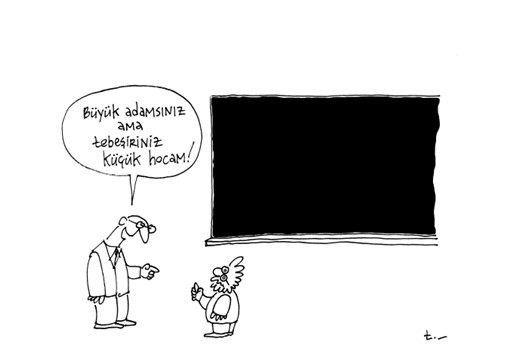 Büyük adamsınız
ama
tebeşiriniz
küçük hocam!
t.